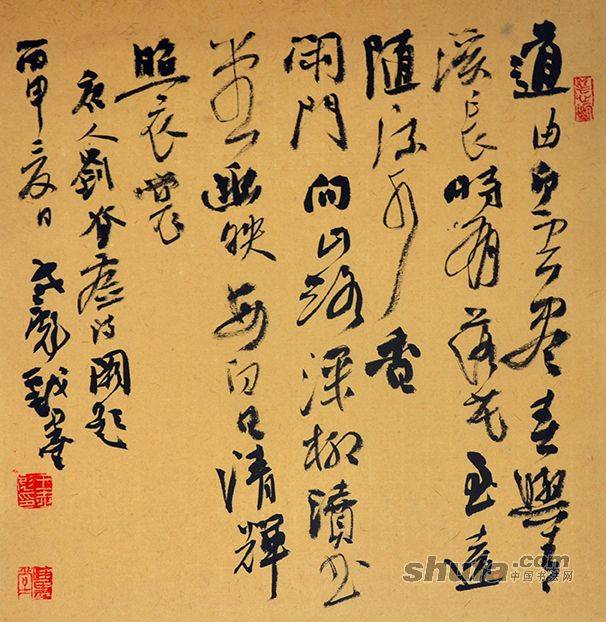 道由白雲盡春與青
溪長時有落花至遠
随流水香
閑門向山路深柳讀書
堂幽映每白日清輝
照衣裳
唐人劉昚虚詩闕題
丙申夏日
shufa.com
中国书法网